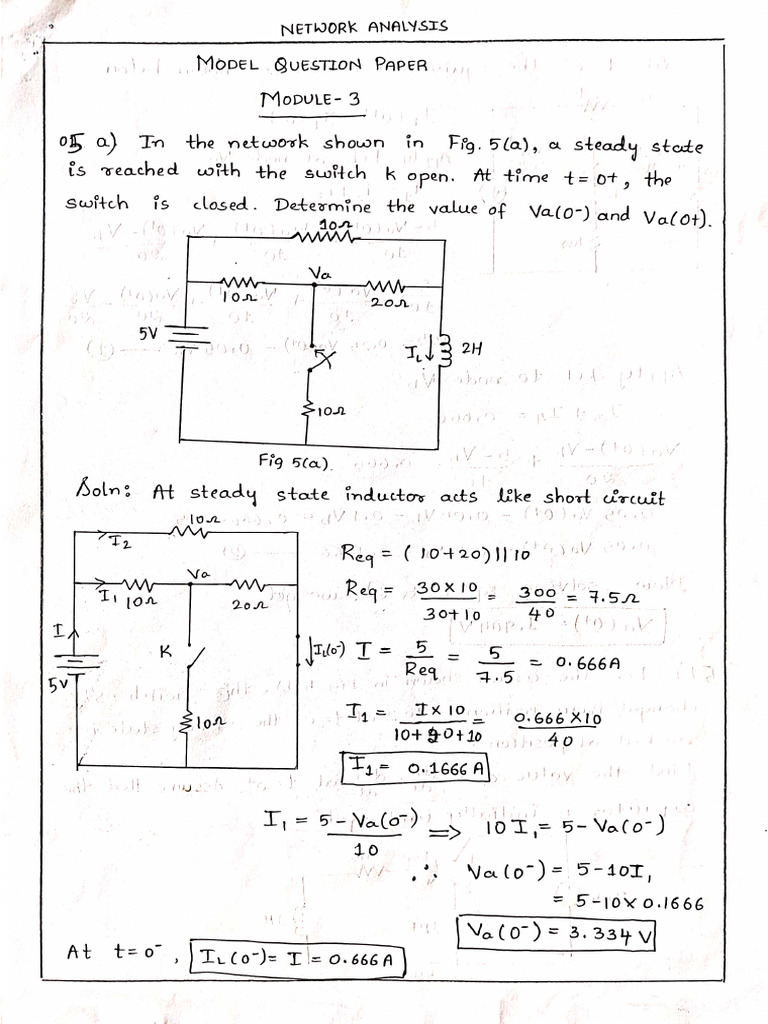 NETWORK ANALYSIS
MODEL QUESTION PAPER
MODULE-3
Q5 a) In the network shown in Fig. 5(a), a steady state
is reached with the switch k open. At time t=0+, the
switch is closed. Determine the value of Va(0-) and Va(0+).
10Ω
Va
10Ω
20Ω
5V
IL
2H
10Ω
Fig 5(a).
Soln: At steady state inductor acts like short circuit
10Ω
I2
Va
I1 10Ω
20Ω
I
K
IL(0-)
5V
10Ω
Req = (10+20)||10
Req = 30×10/30+10 = 300/40 = 7.5Ω
I = 5/Req = 5/7.5 = 0.666A
I1 = I×10/10+20+10 = 0.666×10/40
I1 = 0.1666 A
I1 = 5-Va(0-)/10 ⇒ 10I1 = 5-Va(0-)
∴ Va(0-) = 5-10I1
= 5-10×0.1666
Va(0-) = 3.334 V
At t=0-, IL(0-)= I = 0.666A